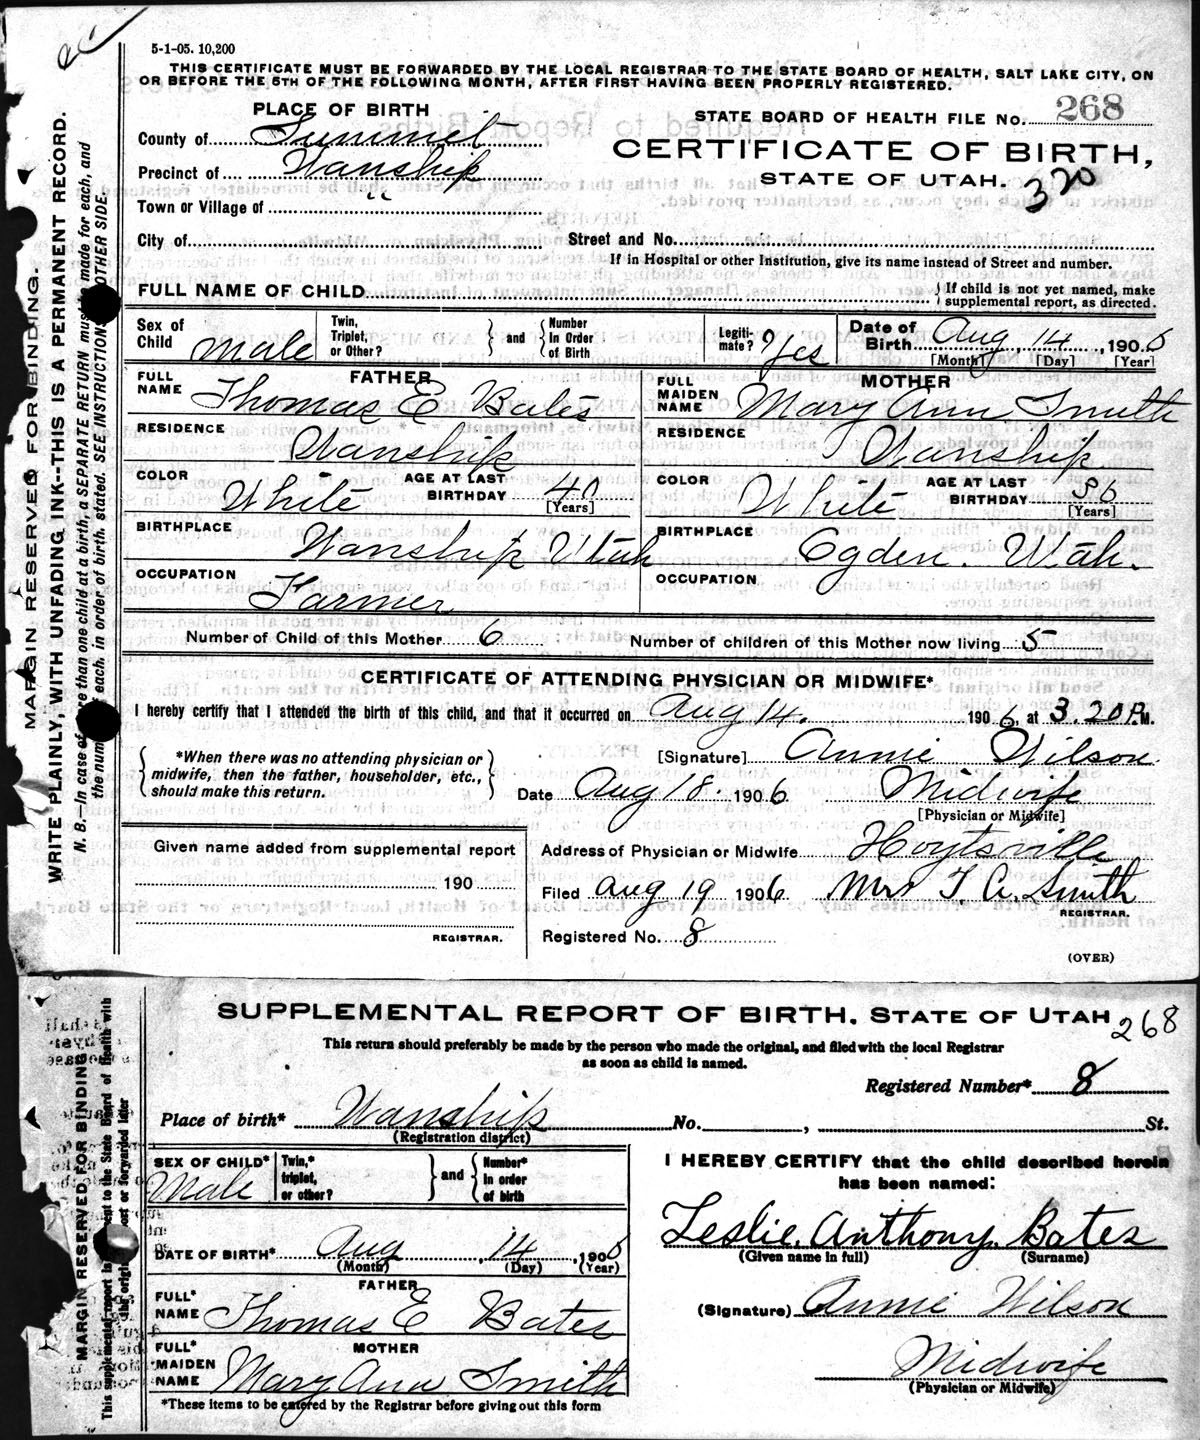 5-1-05. 10,200
THIS CERTIFICATE MUST BE FORWARDED BY THE LOCAL REGISTRAR TO THE STATE BOARD OF HEALTH, SALT LAKE CITY, ON
OR BEFORE THE 5TH OF THE FOLLOWING MONTH, AFTER FIRST HAVING BEEN PROPERLY REGISTERED.
PLACE OF BIRTH
STATE BOARD OF HEALTH FILE NO. 268
County of Summit
CERTIFICATE OF BIRTH,
Precinct of Wanship
STATE OF UTAH. 320
Town or Village of " 
City of Street and No.
If in Hospital or other Institution, give its name instead of Street and number.
FULL NAME OF CHILD { If child is not yet named, make
supplemental report, as directed.
Sex of Child Male
Twin, Triplet, or Other? } and { Number In Order of Birth
Legitimate? Yes
Date of Birth Aug 14, 1906
[Month] [Day] [Year]
FATHER
FULL NAME Thomas E Bates
MOTHER
FULL MAIDEN NAME Mary Ann Smith
RESIDENCE Wanship
RESIDENCE Wanship
COLOR White AGE AT LAST BIRTHDAY 40 [Years]
COLOR White AGE AT LAST BIRTHDAY [Years]
BIRTHPLACE Wanship Utah
BIRTHPLACE Ogden. Utah.
OCCUPATION Farmer
OCCUPATION
Number of Child of this Mother 6 Number of children of this Mother now living 5
CERTIFICATE OF ATTENDING PHYSICIAN OR MIDWIFE*
I hereby certify that I attended the birth of this child, and that it occurred on Aug 14. 1906, at 3.20 P.M.
*When there was no attending physician or
midwife, then the father, householder, etc.,
should make this return.
[Signature] Annie Wilson
Date Aug 18. 1906. Midwife
[Physician or Midwife]
Given name added from supplemental report
190
REGISTRAR.
Address of Physician or Midwife Hoytsville
Filed Aug 19 1906 Mrs T. A. Smith
REGISTRAR.
Registered No. 8
(OVER)
MARGIN RESERVED FOR BINDING.
WRITE PLAINLY, WITH UNFADING INK--THIS IS A PERMANENT RECORD.
N. B.—In case of more than one child at a birth, a SEPARATE RETURN must be made for each, and
the number of each, in order of birth, stated. SEE INSTRUCTIONS ON OTHER SIDE.
SUPPLEMENTAL REPORT OF BIRTH. STATE OF UTAH 268
This return should preferably be made by the person who made the original, and filed with the local Registrar
as soon as child is named.
Registered Number* 8
Place of birth* Wanship No. , St.
(Registration district)
SEX OF CHILD* Male
Twin,* triplet, or other? } and { Number* In order of birth
I HEREBY CERTIFY that the child described herein
has been named:
Leslie Anthony Bates
(Given name in full) (Surname)
DATE OF BIRTH* Aug 14, 1906
(Month) (Day) (Year)
FATHER
FULL* NAME Thomas E Bates
(Signature) Annie Wilson
MOTHER
FULL* MAIDEN NAME Mary Ann Smith
Midwife
(Physician or Midwife)
*These items to be entered by the Registrar before giving out this form
MARGIN RESERVED FOR BINDING